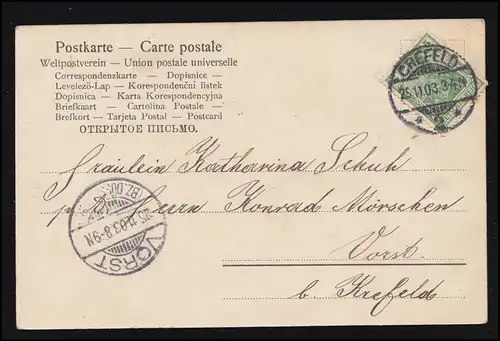 Postkarte — Carte postale
Weltpostverein — Union postale universelle
Correspondenzkarte — Dopisnice —
Levelező-Lap — Korespondenční lístek
Dopisnica — Karta Korespondencyjna
Briefkaart — Cartolina Postale —
Brefkort — Tarjeta Postal — Postcard
ОТКРЫТОЕ ПИСЬМО.
CREFELD
25.11.03.3-4
* 2 *
Fräulein Katharina Schuh
Herrn Konrad Mörschen
Vorst
b. Krefeld
(BZ.DÜ
25.11.03.8-9N
VORST